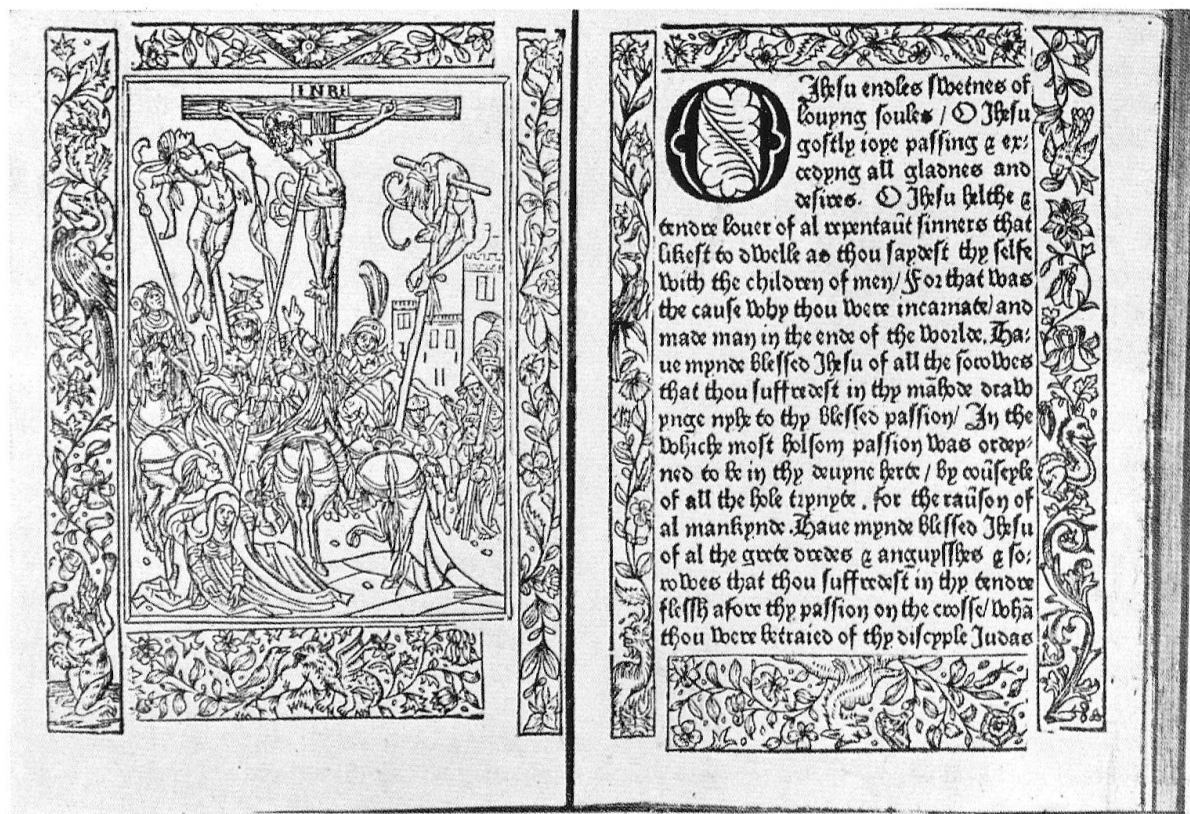 INRI
O Jhesu endles swetnes of
louyng soules / O Jhesu
gostly ioye passing & ex-
cedyng all gladnes and
desires. O Jhesu helthe &
tendre louer of al repentaūt sinners that
likest to dwelle as thou saydest thy selfe
with the children of men / For that was
the cause why thou were incarnate / and
made man in the ende of the worlde. Ha-
ue mynde blessed Jhesu of all the sorowes
that thou suffredest in thy māhode draw
ynge nyhe to thy blessed passion / In the
whiche most holsom passion was ordey-
ned to be in thy deuyne herte / by coūseyle
of all the hole trynyte. for the raūson of
al mankynde. Haue mynde blessed Jhesu
of al the grete dredes & anguysshes & so-
rowes that thou suffredest in thy tendre
flessh afore thy passion on the crosse / whā
thou were betraied of thy discyple Judas